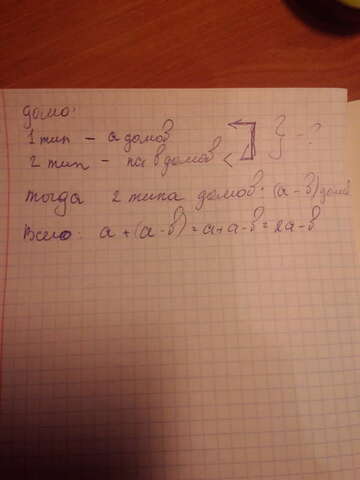 дома:
1 тип - a домов
2 тип - на b домов < } - ?
тогда 2 типа домов: (a-b) домов
Всего: a+(a-b)=a+a-b=2a-b